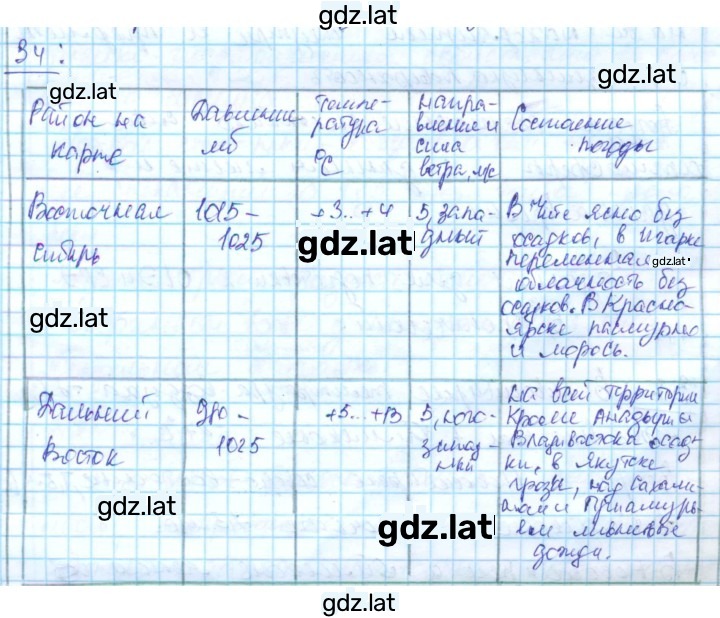 gdz.lat
34:
gdz.lat
gdz.lat
Район на карте
Давление мб
Темпе-
ратура
°C
Напра-
вление и
сила
ветра, м/с
Состояние
погоды
Восточная
Сибирь
1015-
1025
+3..+4
5, запа-
дный
В Чите ясно без
осадков, в Игарке
переменная
облачность без
осадков. В Красно-
ярске пасмурно
и морось.
gdz.lat
gdz.lat
gdz.lat
Дальний
Восток
1025
+5...+13
5, юго-
запад-
ный
На всей территории
кроме Анадыри и
Владивостока осад-
ки, в Якутске
грозы, над Сахали-
ном и Приамурь-
ем ливневые
дожди.
gdz.lat
gdz.lat
gdz.lat